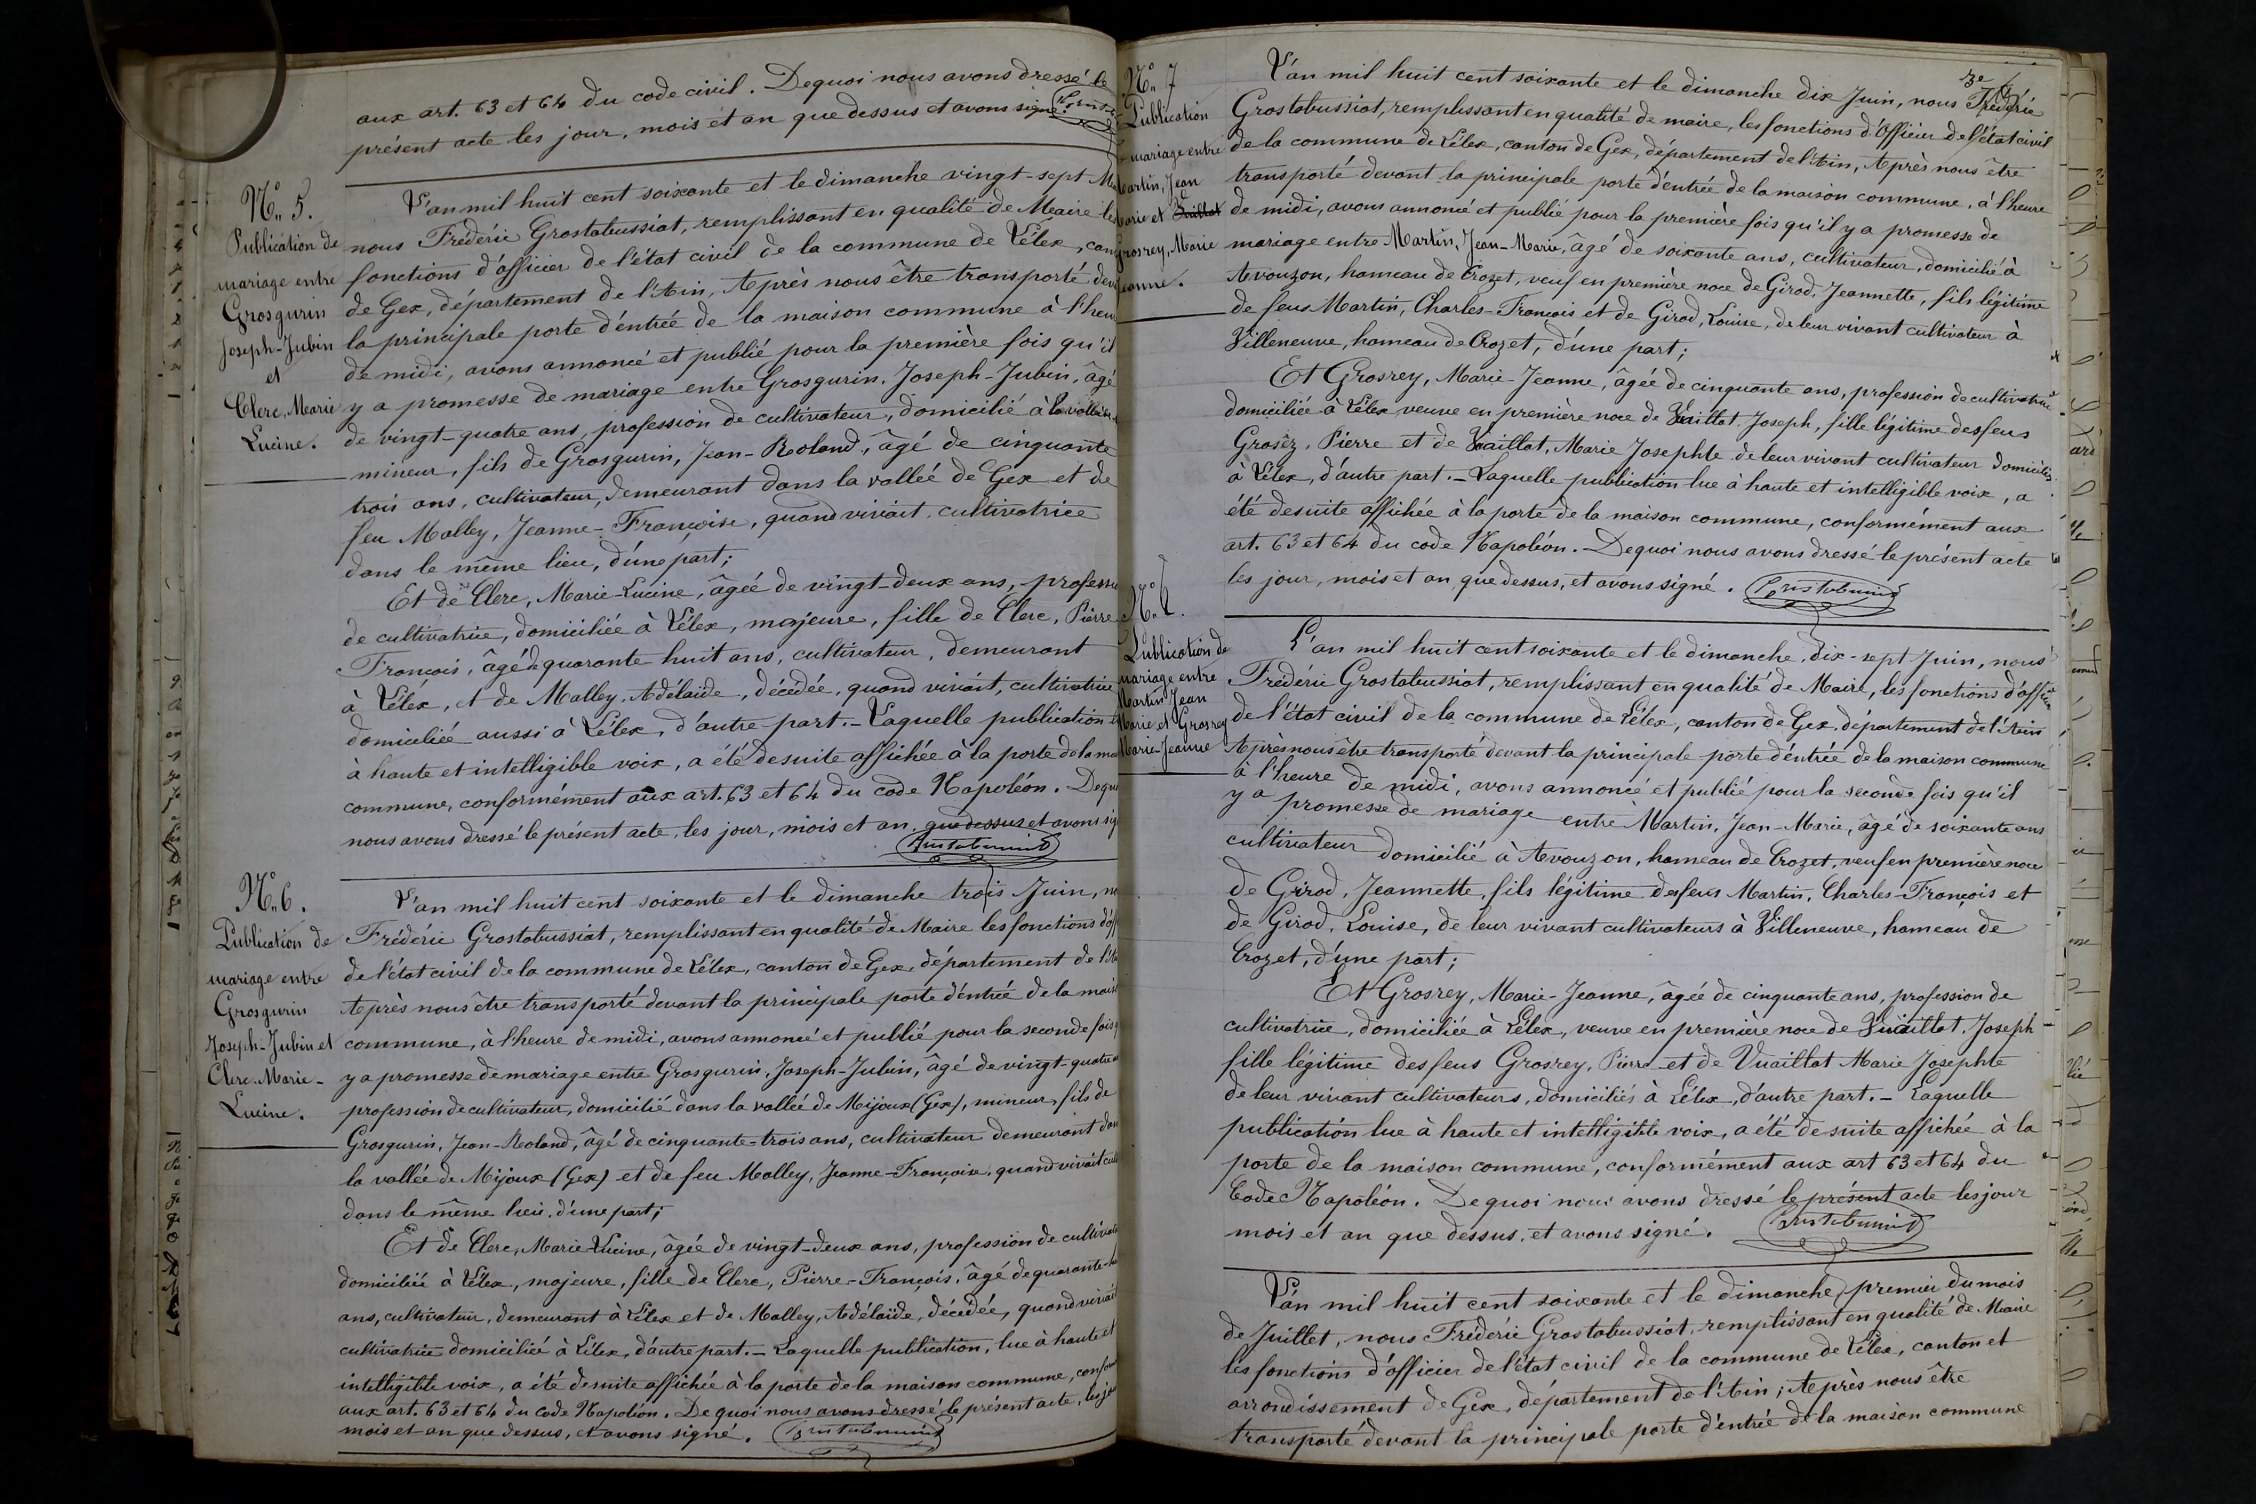 aux art. 63 et 64 du code civil. Dequoi nous avons dressé le
présent acte les jour, mois et an que dessus et avons signé.
N° 5.
Publication de
mariage entre
Grosgurin
Joseph-Jubin
et
Clerc, Marie
Lucine.
L'an mil huit cent soixante et le dimanche vingt-sept
nous Frédéric Grostabussiat, remplissant en qualité de Maire les
fonctions d'officier de l'état civil de la commune de Lélex, can
de Gex, département de l'Ain, Après nous être transporté dev
la principale porte d'entrée de la maison commune à l'heu
de midi, avons annoncé et publié pour la première fois qu'il
y a promesse de mariage entre Grosgurin, Joseph-Jubin, âgé
de vingt-quatre ans, profession de cultivateur, domicilié à la
mineur, fils de Grosgurin, Jean-Roland, âgé de cinquante
trois ans, cultivateur, demeurant dans la vallée de Gex et de
feu Malley, Jeanne-Françoise, quand vivait cultivatrice
dans le même lieu, d'une part;
Et de Clerc, Marie-Lucine, âgée de vingt-deux ans, professi
de cultivatrice, domiciliée à Lélex, majeure, fille de Clerc, Pierre
François, âgé de quarante huit ans, cultivateur, demeurant
à Lélex, et de Malley, Adélaïde, décédée, quand vivait, cultivatrice
domiciliée aussi à Lélex, d'autre part. - Laquelle publication
à haute et intelligible voix, a été desuite affichée à la porte de la mai
commune, conformément aux art. 63 et 64 du code Napoléon. Dequ
nous avons dressé le présent acte, les jour, mois et an, que dessus et avons sig
N° 6.
Publication de
mariage entre
Grosgurin
Joseph-Jubin et
Clerc. Marie-
Lucine.
L'an mil huit cent soixante et le dimanche trois Juin, no
Frédéric Grostabussiat, remplissant en qualité de Maire les fonctions d'off
de l'état civil de la commune de Lélex, canton de Gex, département de l'A
Après nous être transporté devant la principale porte d'entrée de la mais
commune, à l'heure de midi, avons annoncé et publié pour la seconde fois q
y a promesse de mariage entre Grosgurin, Joseph-Jubin, âgé de vingt-quatre a
profession de cultivateur, domicilié dans la vallée de Mijoux (Gex), mineur, fils de
Grosgurin, Jean-Roland, âgé de cinquante-trois ans, cultivateur demeurant dan
la vallée de Mijoux (Gex) et de feu Malley, Jeanne-Françoise, quand vivait cult
dans le même lieu, d'une part;
Et de Clerc, Marie-Lucine, âgée de vingt-deux ans, profession de cultivat
domiciliée à Lélex, majeure, fille de Clerc, Pierre-François, âgé de quarante-hu
ans, cultivateur, demeurant à Lélex et de Malley, Adélaïde, décédée, quand vivait
cultivatrice domiciliée à Lélex, d'autre part. - Laquelle publication, lue à haute et
intelligible voix, a été desuite affichée à la porte de la maison commune, conform
aux art. 63 et 64 du code Napoléon. De quoi nous avons dressé le présent acte, les jou
mois et an que dessus, et avons signé.
3e
N° 7
Publication
mariage entre
Martin, Jean
Marie et Vuillat
Grosrey, Marie
Jeanne.
L'an mil huit cent soixante et le dimanche dix Juin, nous Frédéric
Grostabussiat, remplissant en qualité de maire, les fonctions d'officier de l'état civil
de la commune de Lélex, canton de Gex, département de l'Ain, Après nous être
transporté devant la principale porte d'entrée de la maison commune, à l'heure
de midi, avons annoncé et publié pour la première fois qu'il y a promesse de
mariage entre Martin, Jean-Marie, âgé de soixante ans, cultivateur, domicilié à
Avouzon, hameau de Crozet, veuf en première noce de Girod, Jeannette, fils légitime
de feus Martin, Charles-François et de Girod, Louise, de leur vivant cultivateur à
Villeneuve, hameau de Crozet, d'une part;
Et Grosrey, Marie-Jeanne, âgée de cinquante ans, profession de cultivatrice
domiciliée à Lélex veuve en première noce de Vuaillat, Joseph, fille légitime des feus
Grosrey, Pierre et de Vuaillat, Marie Josephte de leur vivant cultivateur domiciliés
à Lélex, d'autre part. - Laquelle publication lue à haute et intelligible voix, a
été desuite affichée à la porte de la maison commune, conformément aux
art. 63 et 64 du code Napoléon. Dequoi nous avons dressé le présent acte
les jour, mois et an que dessus, et avons signé.
Publication de
mariage entre
Martin Jean
Marie et Grosrey
Marie-Jeanne
L'an mil huit cent soixante et le dimanche, dix-sept Juin, nous
Frédéric Grostabussiat, remplissant en qualité de Maire, les fonctions d'officier
de l'état civil de la commune de Lélex, canton de Gex, département de l'Ain
Après nous être transporté devant la principale porte d'entrée de la maison commune
à l'heure de midi, avons annoncé et publié pour la seconde fois qu'il
y a promesse de mariage entre Martin, Jean-Marie, âgé de soixante ans
cultivateur domicilié à Avouzon, hameau de Crozet, veuf en première noce
de Girod, Jeannette, fils légitime des feus Martin, Charles-François et
de Girod, Louise, de leur vivant cultivateurs à Villeneuve, hameau de
Crozet, d'une part;
Et Grosrey, Marie-Jeanne, âgée de cinquante ans, profession de
cultivatrice, domiciliée à Lélex, veuve en première noce de Vuaillat, Joseph
fille légitime des feus Grosrey, Pierre et de Vuaillat Marie Josephte
de leur vivant cultivateurs, domiciliés à Lélex, d'autre part. - Laquelle
publication lue à haute et intelligible voix, a été desuite affichée à la
porte de la maison commune, conformément aux art 63 et 64 du
Code Napoléon. De quoi nous avons dressé le présent acte les jour
mois et an que dessus, et avons signé.
L'an mil huit cent soixante et le dimanche, premier du mois
de Juillet, nous Frédéric Grostabussiat, remplissant en qualité de Maire
les fonctions d'officier de l'état civil de la commune de Lélex, canton et
arrondissement de Gex, département de l'Ain; Après nous être
transporté devant la principale porte d'entrée de la maison commune